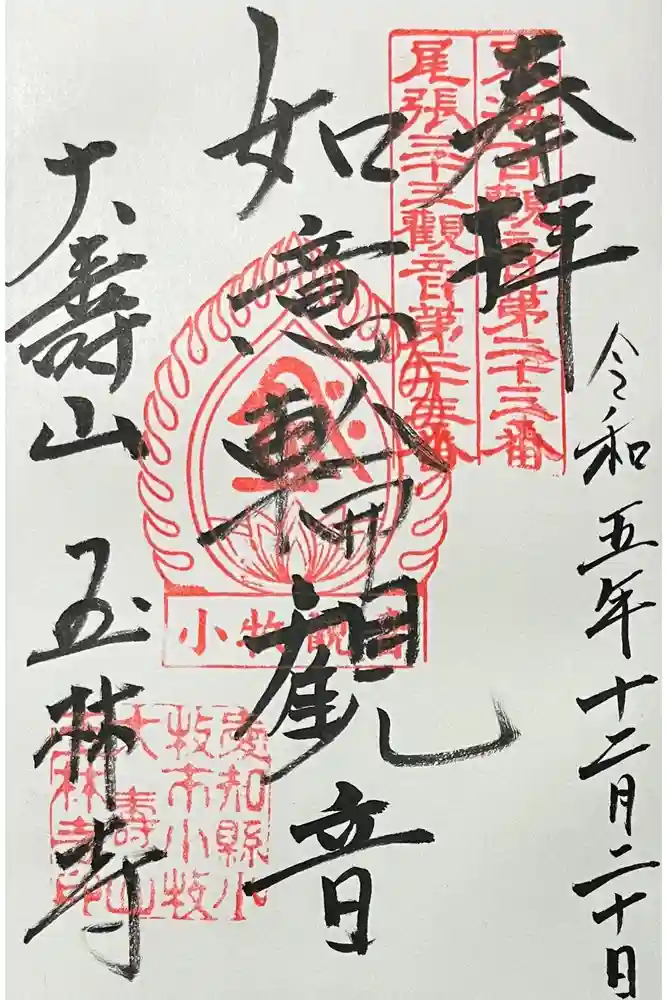 奉拝
東海百観音第二十三番
尾張三十三観音第二十五番
令和五年十二月二十日
如意輪観音
小牧観音
大壽山
玉林寺
愛知縣小
牧市小牧
大壽山
玉林寺印